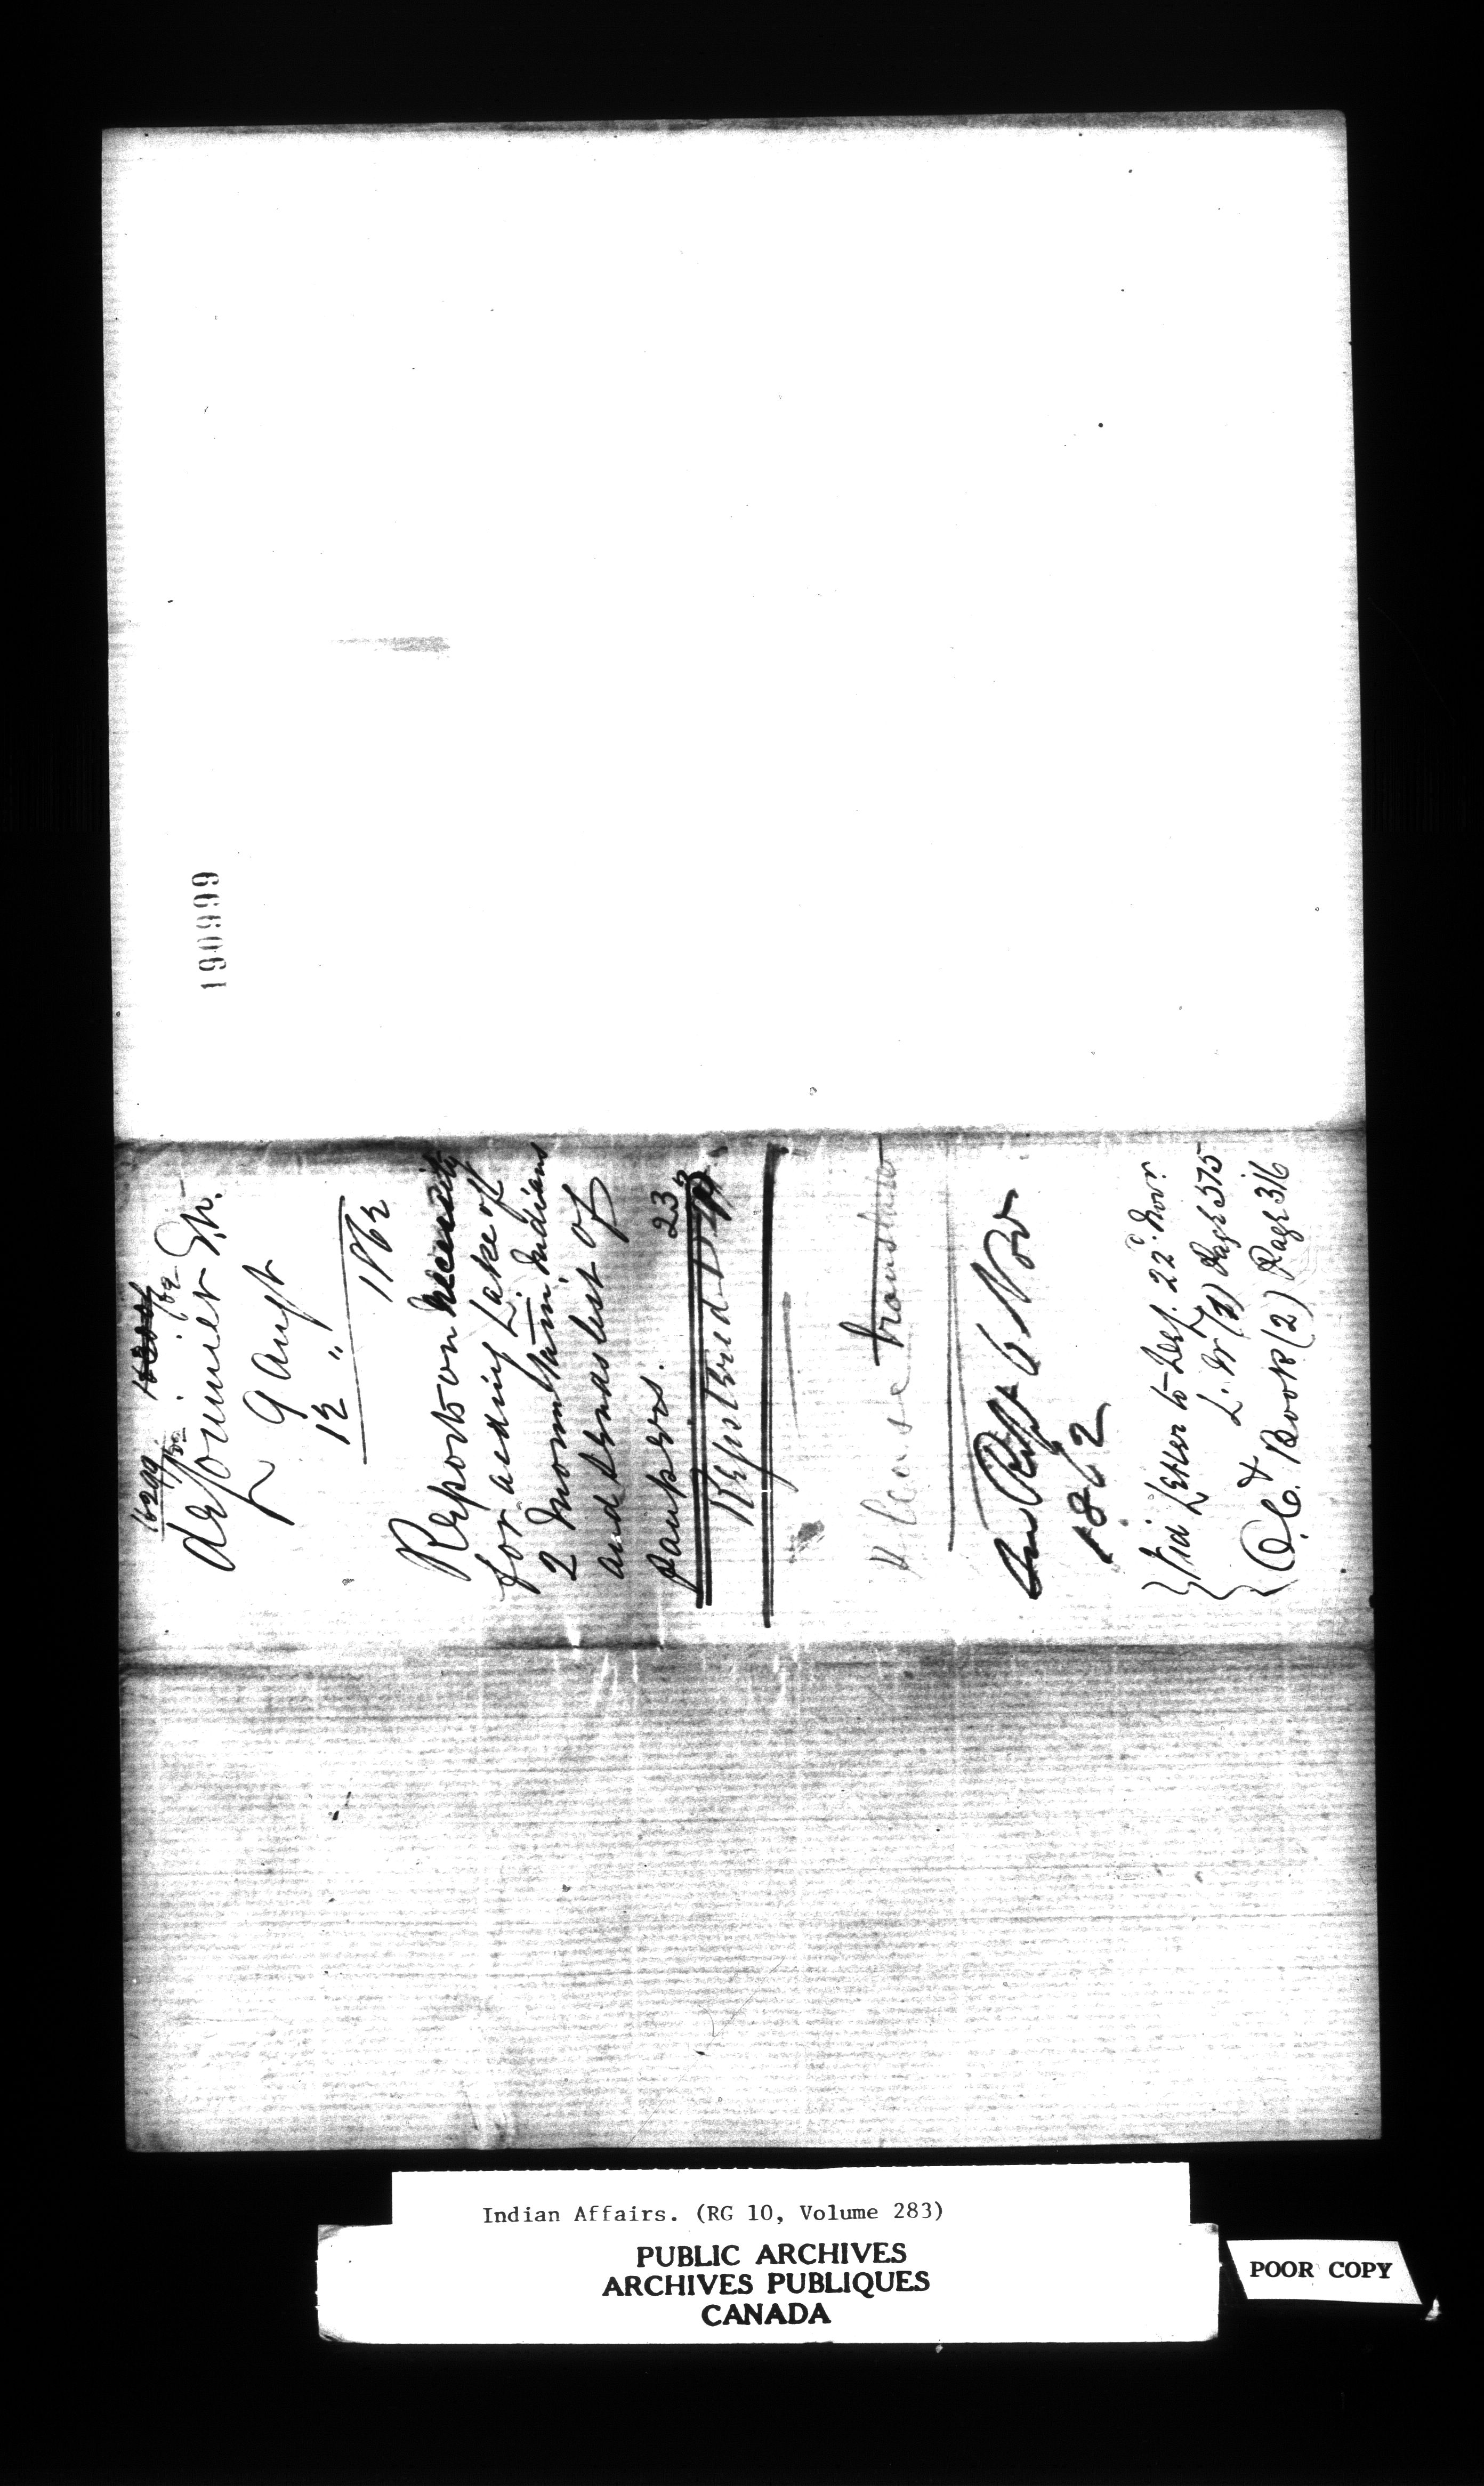 190999
9 Augt
12 "
1862
Report on necessity
for aiding Lake of
2 Mountain Indians
and sends list of
paupers.
233
Registered
Please translate
6 Nov
1862
Vid Letter to Dep. 22d Novr
Page 575
&
O.C. Book (2) Page 316
Indian Affairs. (RG 10, Volume 283)
PUBLIC ARCHIVES
ARCHIVES PUBLIQUES
CANADA
POOR COPY